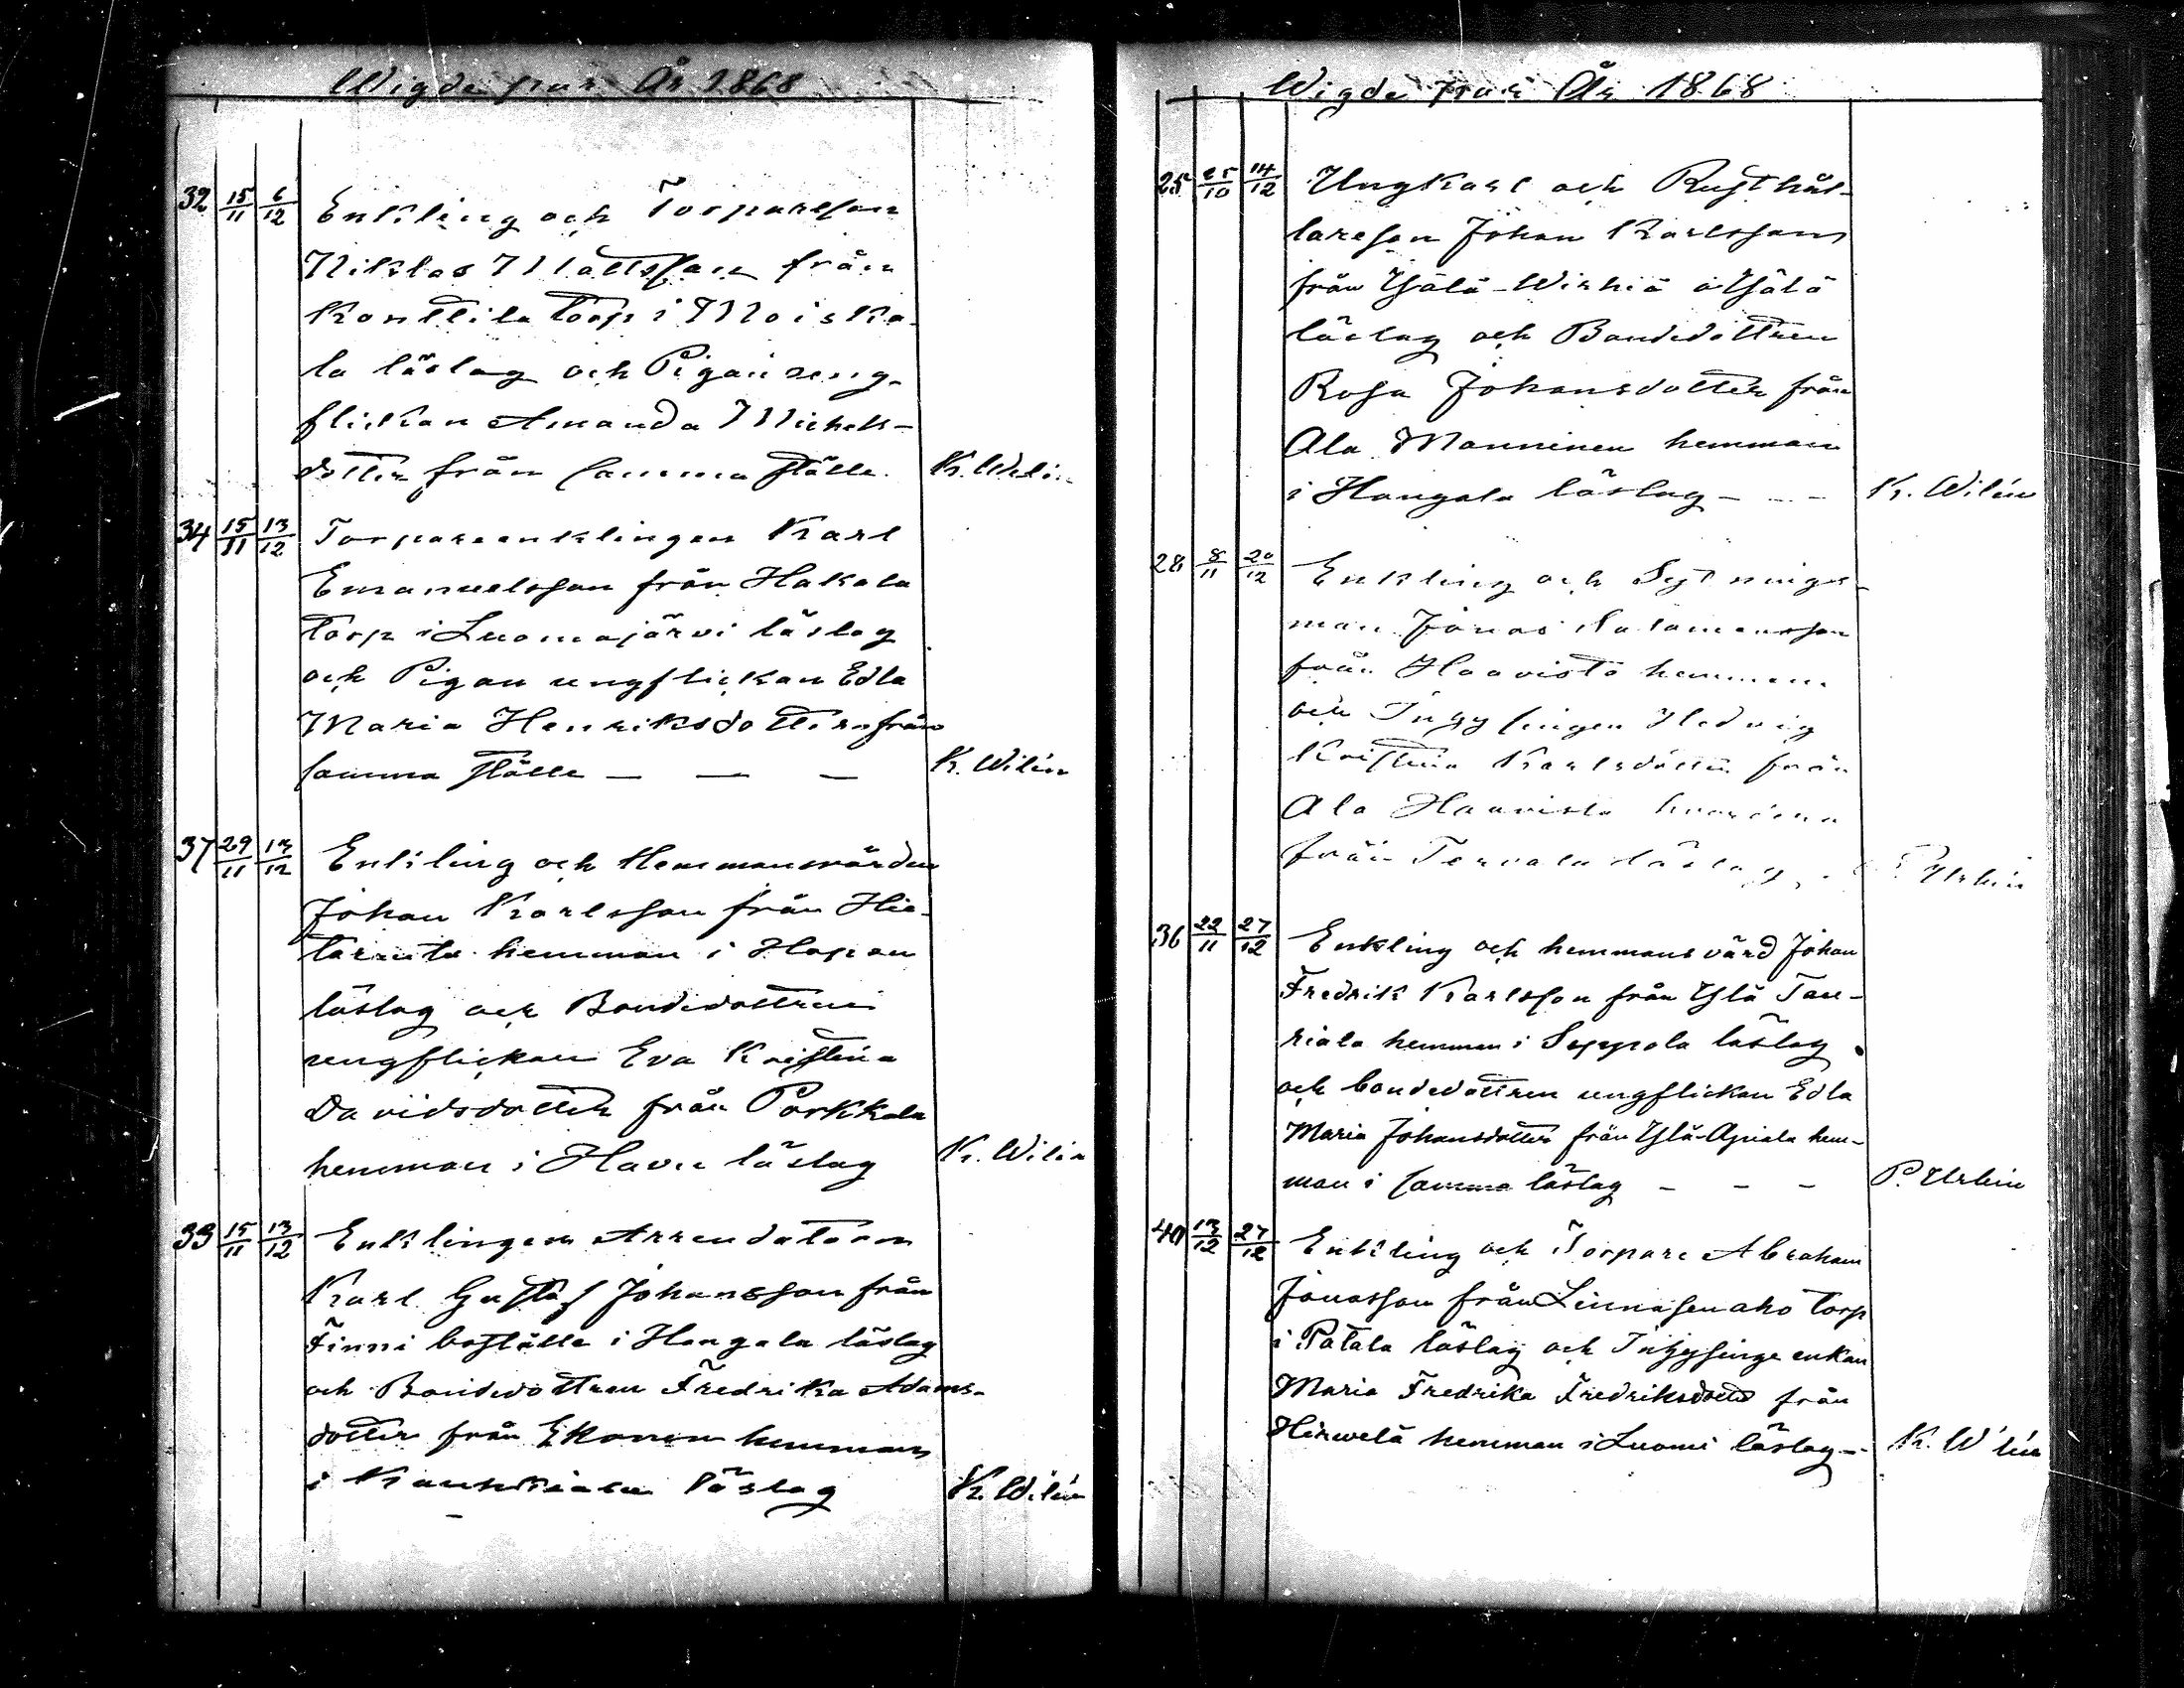 Wigde par År 1868
32 15/11 6/12 Enkling och Torpareson
Niklas Mattsson från
Konttila torp i Moiska-
la läslag och Pigan ung-
flickan Amanda Michels-
dotter från samma ställe. K. Wilén
34 15/11 13/12 Torpareenklingen Karl
Emanuelsson från Hakala
torp i Luomajärvi läslag
och Pigan ungflickan Edla
Maria Henriksdotter från
samma ställe — — — K. Wilén
37 29/11 13/12 Enkling och Hemmansvärden
Johan Karlsson från Hie-
taranta hemman i Hapan
läslag och Bondedottren
ungflickan Eva Kristina
Davidsdotter från Porkkala
hemman i Havu läslag K. Wilén
33 15/11 13/12 Enklingen Arrendatorn
Karl Gustaf Johansson från
Finni boställe i Hangala läslag
och Bondedottren Fredrika Adams-
dotter från Ekonen hemman
i läslag K. Wilén
Wigde par År 1868
25 25/10 14/12 Ungkarl och Rusthål-
lareson Johan Karlsson
från Ylälä-Wirhiä i Ylälä
läslag och Bondedottren
Rosa Johansdotter från
Ala Manninen hemman
i Hangala läslag — — — K. Wilén
28 8/11 20/12 Enkling och Sytnings-
man Jonas Salomonsson
från Haavisto hemman
och Inhysingen Hedvig
Kristina Karlsdotter från
Ala Haavisto hemman
från Tervala läslag P. Urhin
36 22/11 27/12 Enkling och hemmansvärd Johan
Fredrik Karlsson från Ylä Tau-
riala hemman i Seppola läslag
och bondedottren ungflickan Edla
Maria Johansdotter från Ylä-Apiala hem-
man i samma läslag — — — P. Urhin
40 13/12 27/12 Enkling och Torpare Abraham
Jonasson från Linnasenaho torp
i Patala läslag och Inhysinge enkan
Maria Fredrika Fredriksdotter från
Hirwelä hemman i Luomi läslag — K. Wilén